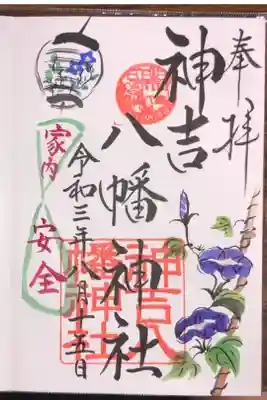 奉拝
神吉
八幡神社
令和三年八月十五日
家内安全
神吉八
幡神社